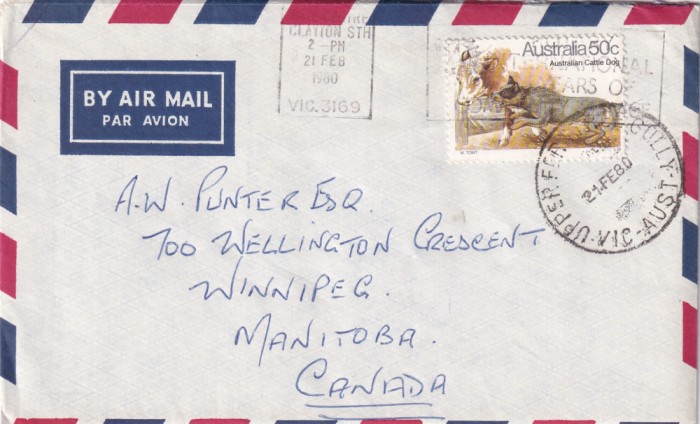 CLAYTON STH
2 - PM
21 FEB
1980
VIC. 3169
Australia 50c
Australian Cattle Dog
BY AIR MAIL
PAR AVION
UPPER GULLY
21 FE 80
VIC - AUST
A.W. PUNTER ESQ.
700 WELLINGTON CRESCENT
WINNIPEG.
MANITOBA.
CANADA